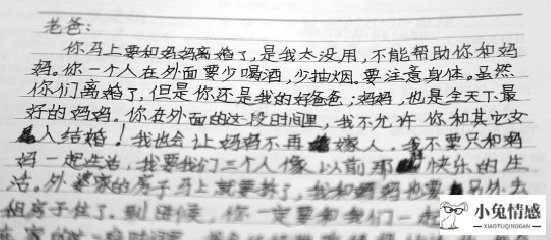 老爸：
你马上要和妈妈离婚了，是我太没用，不能帮助你和妈
妈。你一个人在外面要少喝酒，少抽烟。要注意身体。虽然
你们离婚了，但是你还是我的好爸爸；妈妈，也是全天下最
好的妈妈。你在外面的这段时间里，我不允许你和其它女
人结婚！我也会让妈妈不再嫁人。我不要只和妈
妈一起生活，我要我们三个人像以前那样快乐的生
活。外婆家的房子马上就要拆了，我和妈妈也要另外去
租房子住了。到时候，你一定要和我们一起
小兔情感
XIAOTUQINGGAN